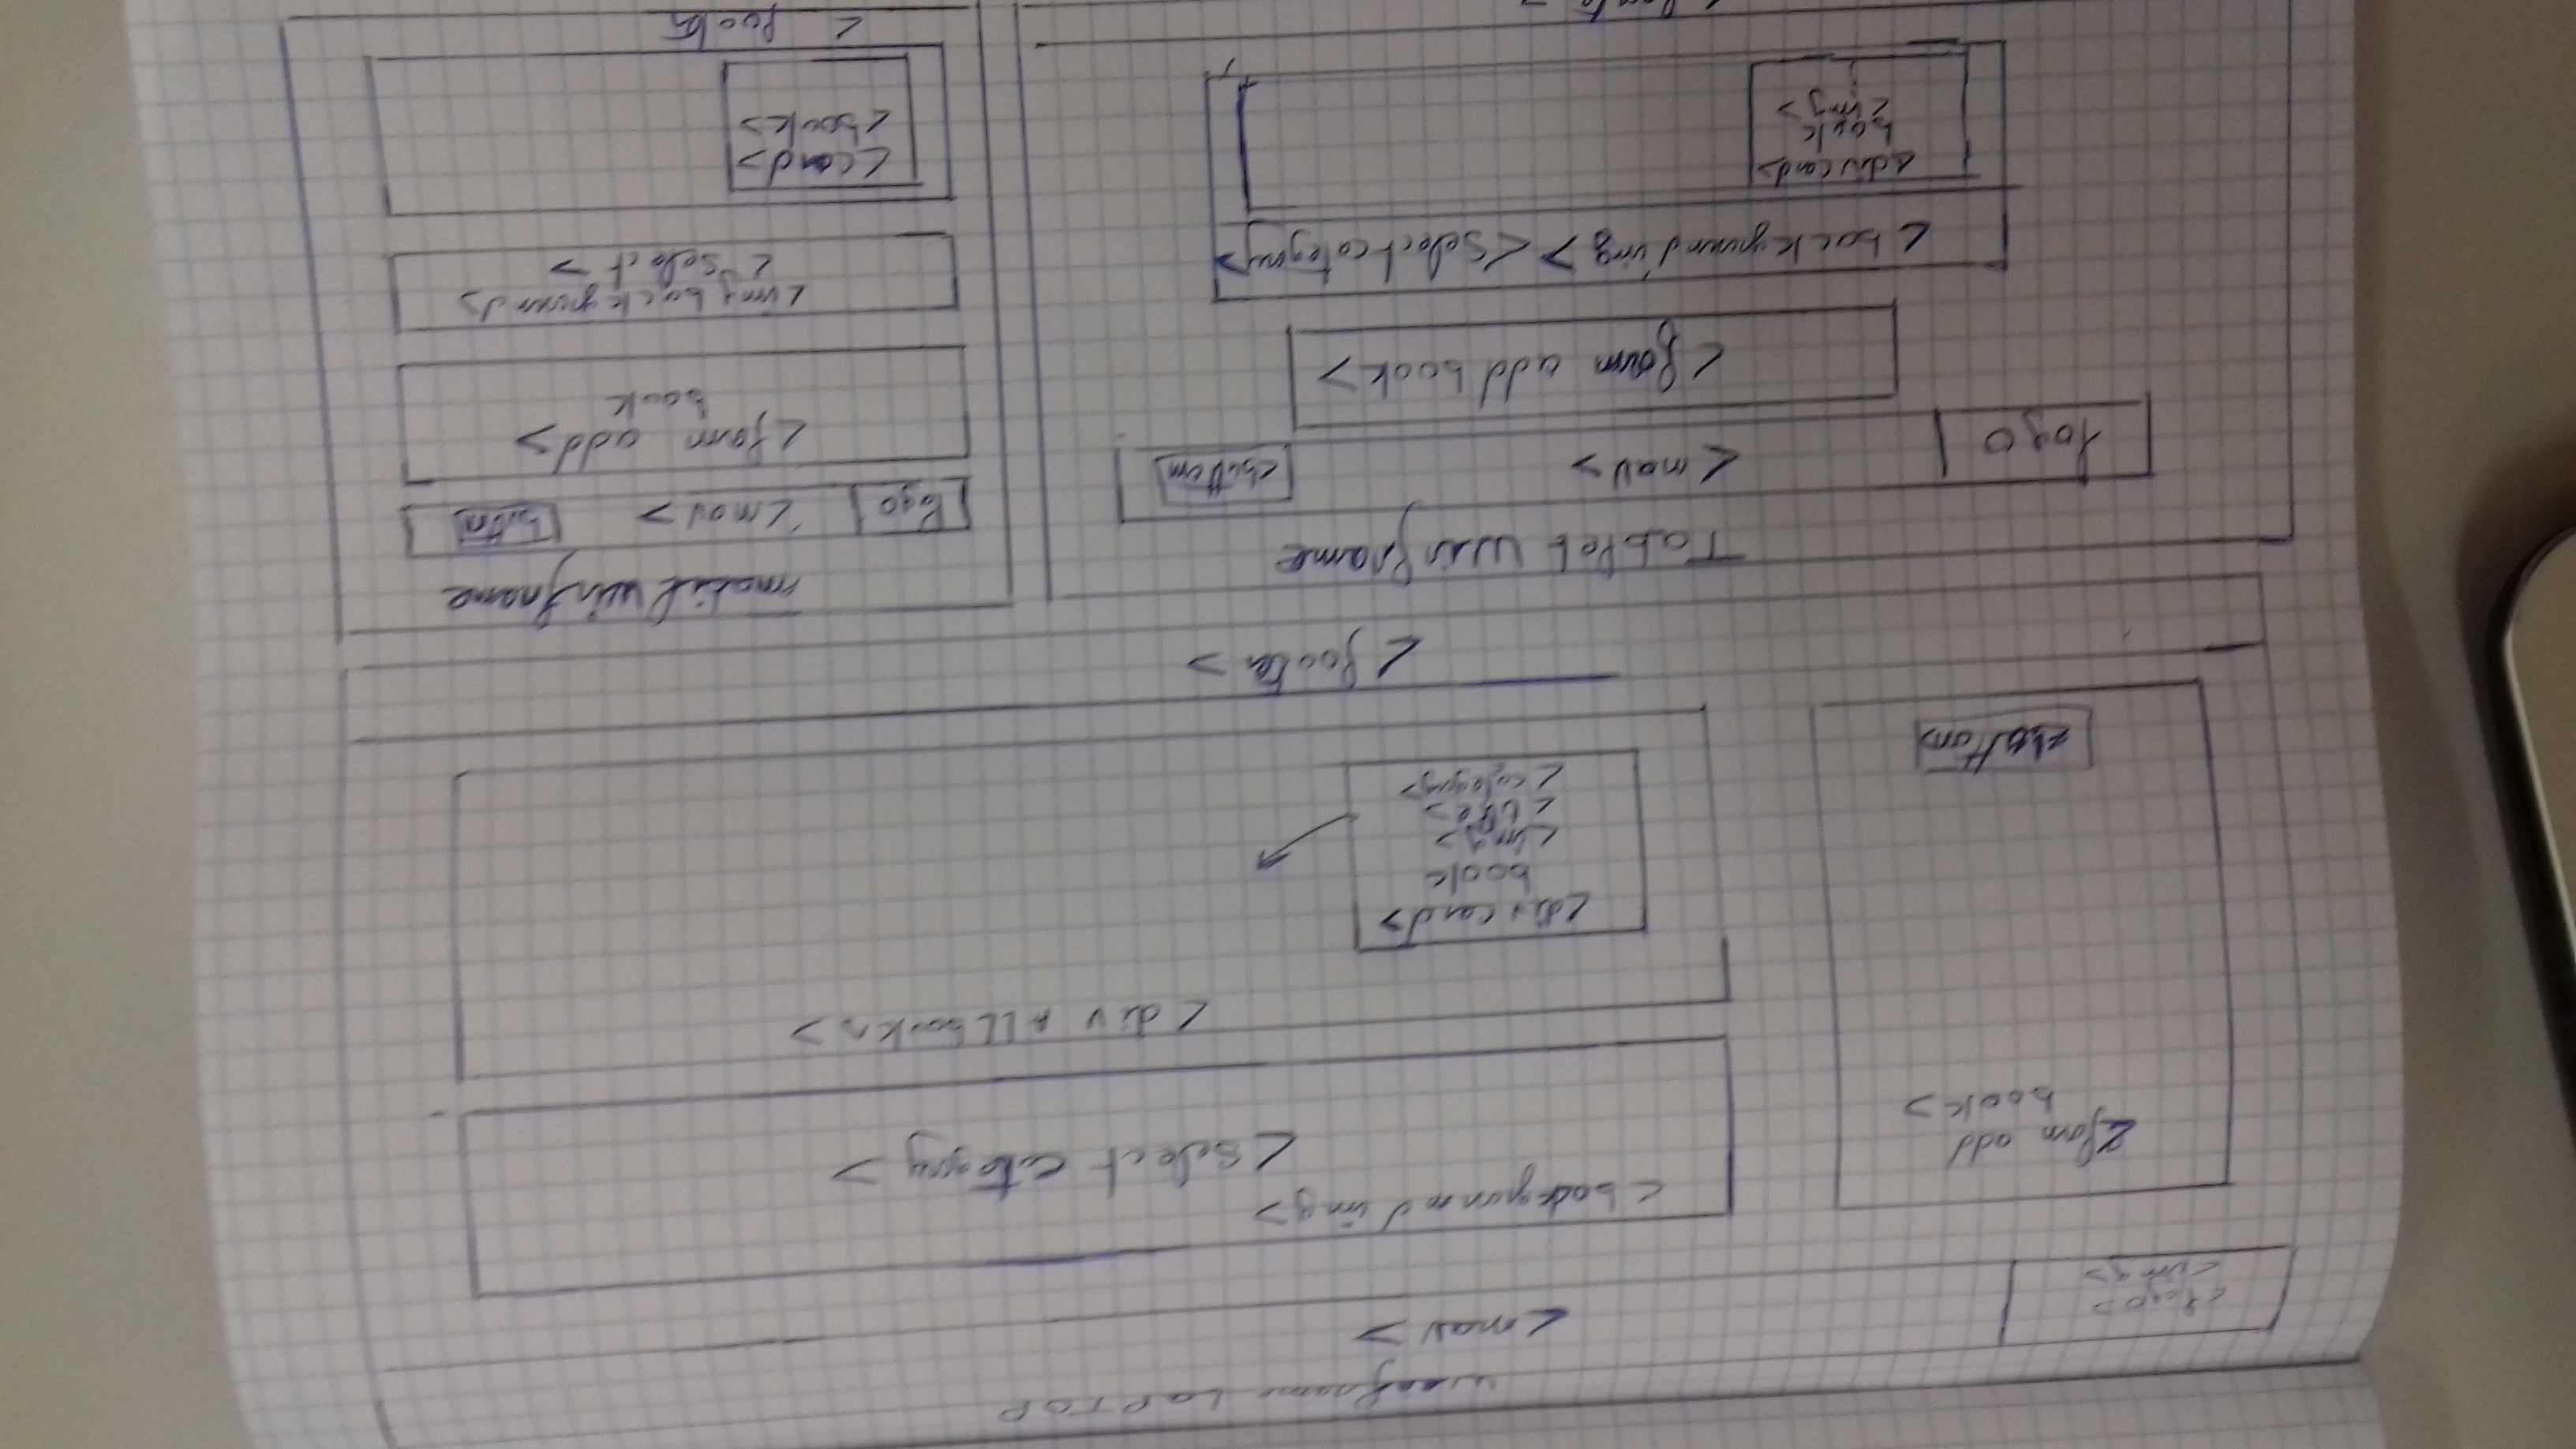 LAPTOP
<nav>
<logo>
<img>
<form add
book>
<button>
<background img>
<select category>
<div ALL books>
<div card>
book
<img>
<title>
<category>
<footer>
Tablet wirframe
logo
<nav>
<button
<form add book>
<background img> <select category>
<div card>
book
<img>
mobil wirframe
logo
<nav>
button
<form add>
book
<img backgrounds
<select>
<card>
<book>
< footer